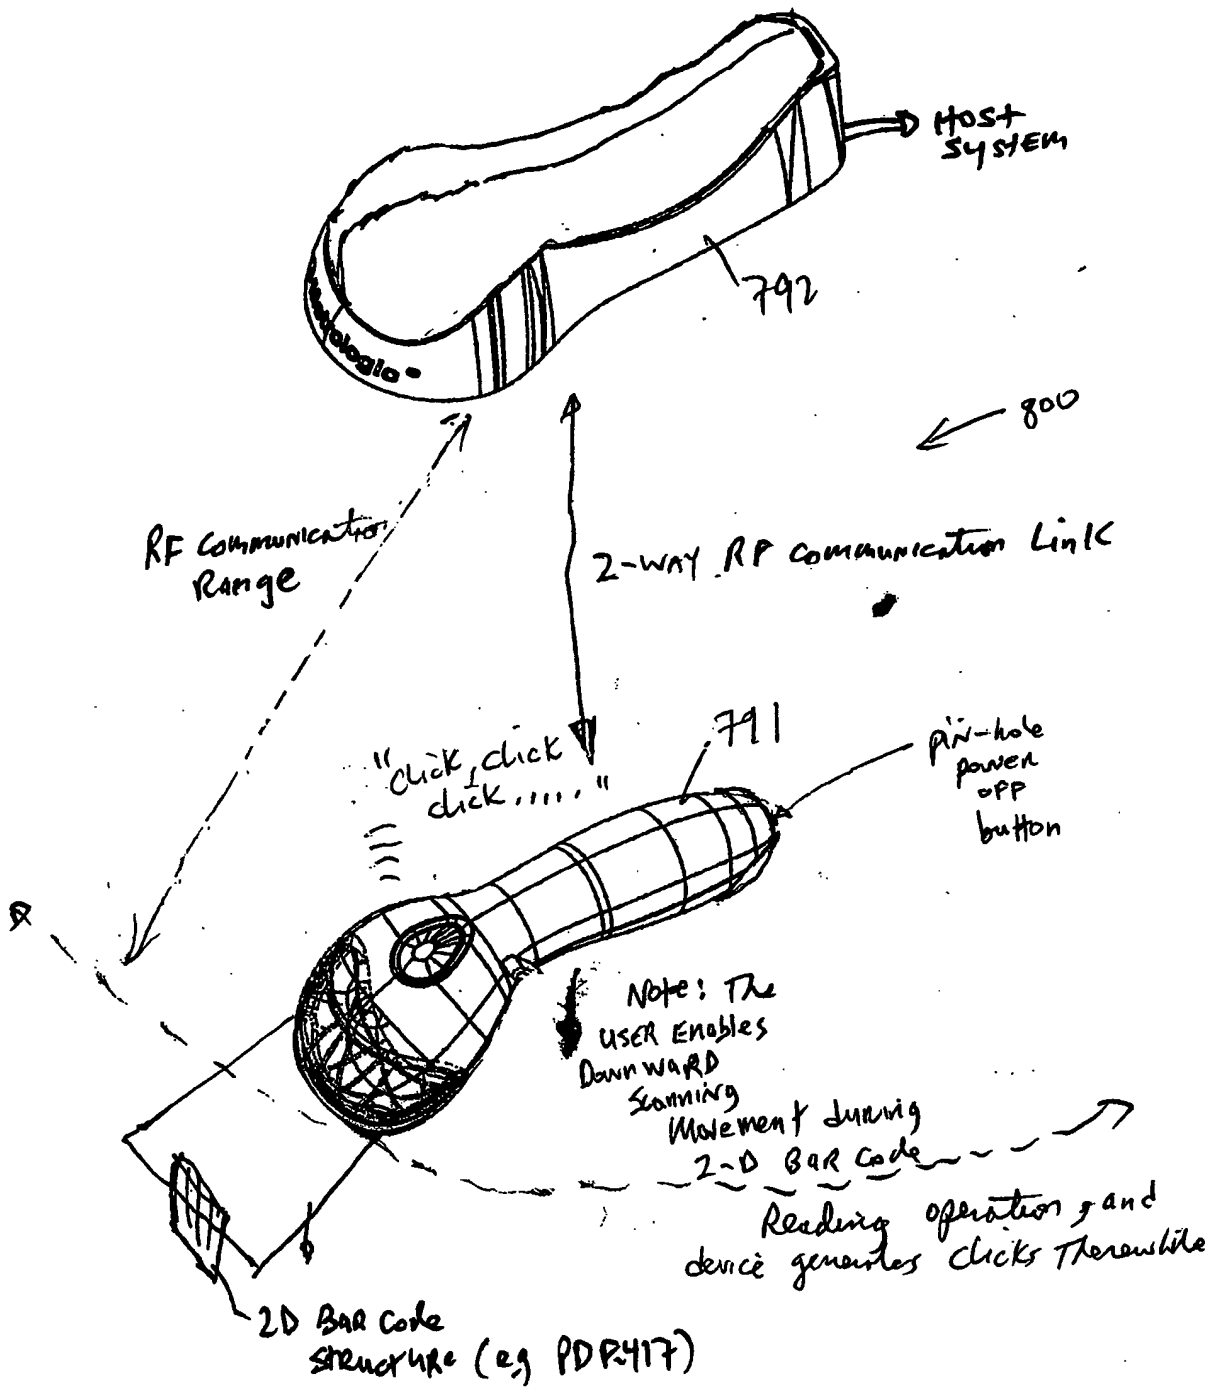 HOST
SYSTEM
792
metrologic
800
RF Communication
Range
2-WAY RF Communication Link
"click, click
click....."
791
pin-hole
power
off
button
Note: The
USER Enables
DownwaRD
Scanning
Movement during
2-D BAR Code
Reading operation, and
device generates clicks Therewhile
2D BAR Code
structure (eg PDF-417)